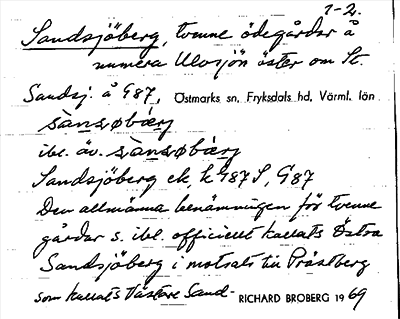 1-2.
Sandsjöberg, tvenne ödegårdar å
numera Ulvsjön öster om St.
Sandsj. å G87, Östmarks sn, Fryksdals hd, Värml. län
ibl. äv.
Sandsjöberg ek, k G87 S, G87
Den allmänna benämningen för tvenne
gårdar s. ibl. officiellt kallats Östra
Sandsjöberg i motsats till Pråstberg
som kallats Västare Sand- RICHARD BROBERG 1969